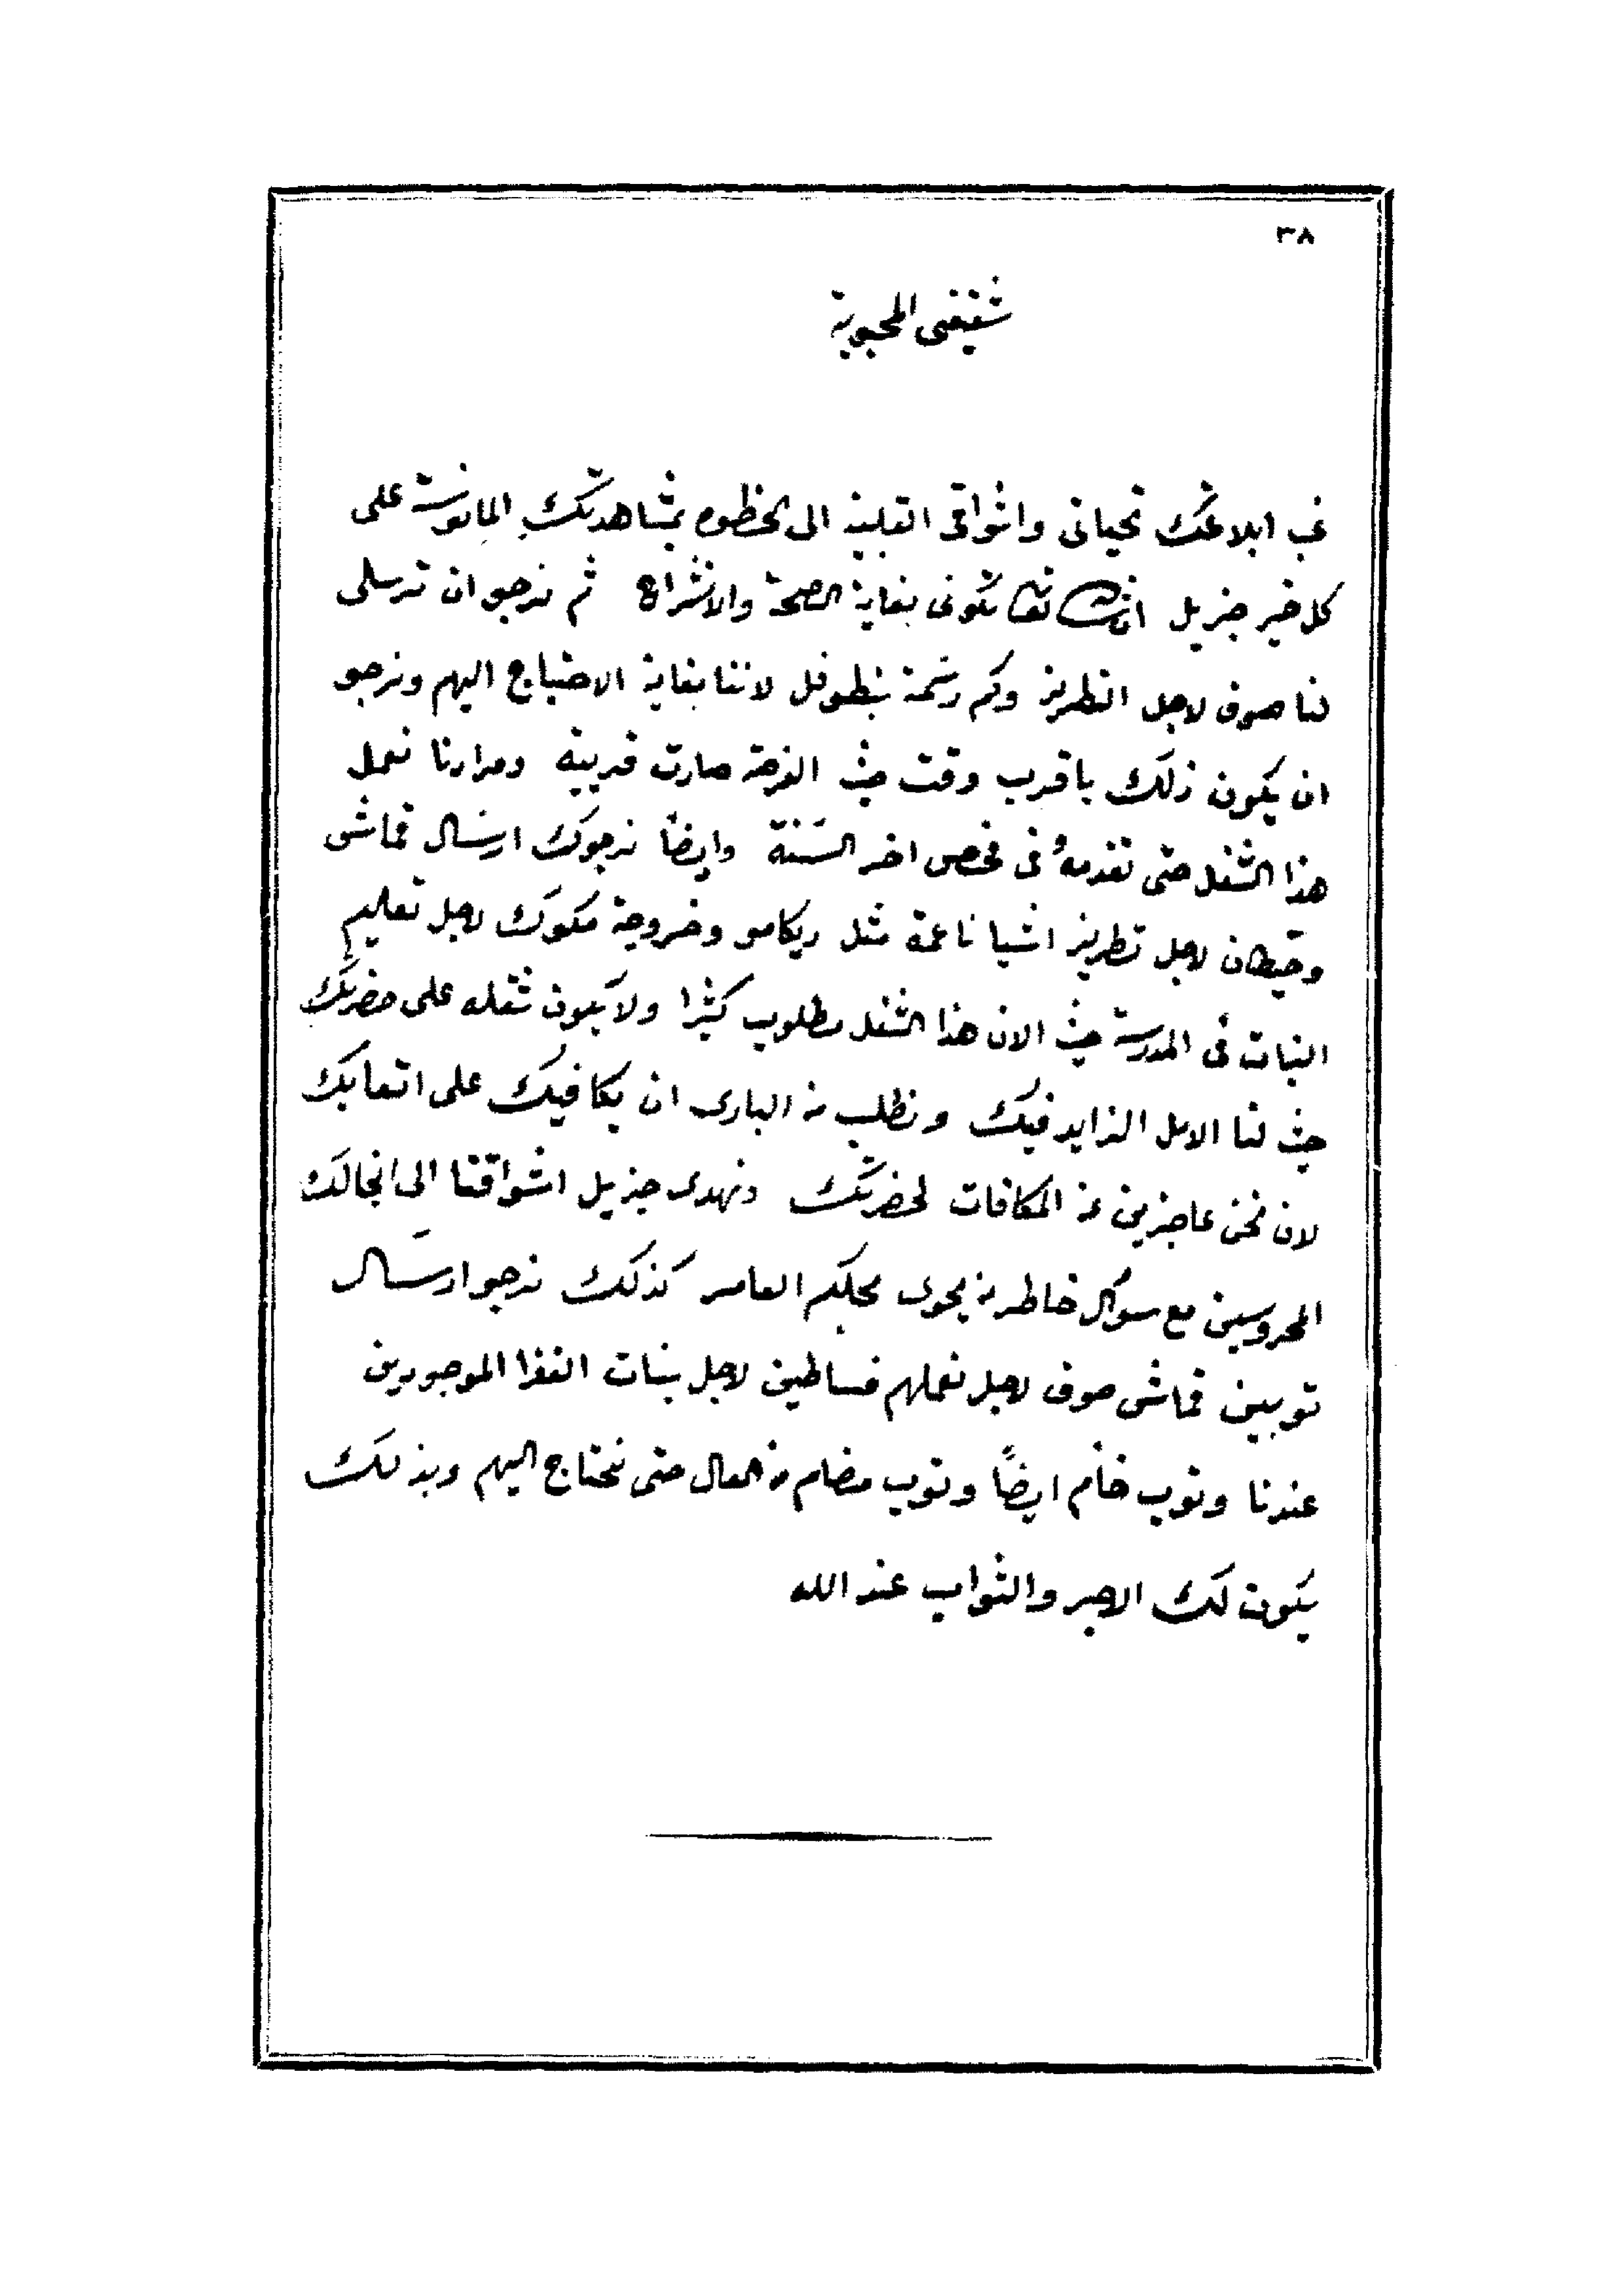 ٣٨
شقيقتى المحبوبة
غب ابلاغك تحياتى واشواقى القلبية الى الحظوه بمشاهدتك المانوسة على
كل خير جزيل انشالله تعا تكونى بغاية الصحة والانشراح ثم نرجو ان ترسلى
لنا صوف لاجل التطريز وكم رسمة بنطوفل لاننا بغاية الاحتياج اليهم ونرجو
ان يكون ذلك باقرب وقت حيث الفرصة صارت قريبة ومرادنا نعمل
هذا الشغل حتى نقدمهُ فى فحص اخر السنة وايضاً نرجوك ارسال قماش
وخيطان لاجل تطريز اشيا ناعمة مثل ريكامو وخروجة مكوك لاجل تعليم
البنات فى المدرسة حيث الان هذا الشغل مطلوب كثيرا ولا يكون ثقله على حضرتك
حيث لنا الامل الزايد فيك ونطلب من البارى ان يكافيك على اتعابك
لان نحن عاجزين عن المكافات لحضرتك ونهدى جزيل اشواقنا الى انجالك
المحروسين مع سوال خاطر من يحوى محلكم العامر كذلك نرجوا ارسال
توبين قماش صوف لاجل نعملهم فساطين لاجل بنات الفقرا الموجودين
عندنا وتوب خام ايضاً وتوب مضام من العال حتى نحتاج اليهم وبذلك
يكون لك الاجر والثواب عند الله